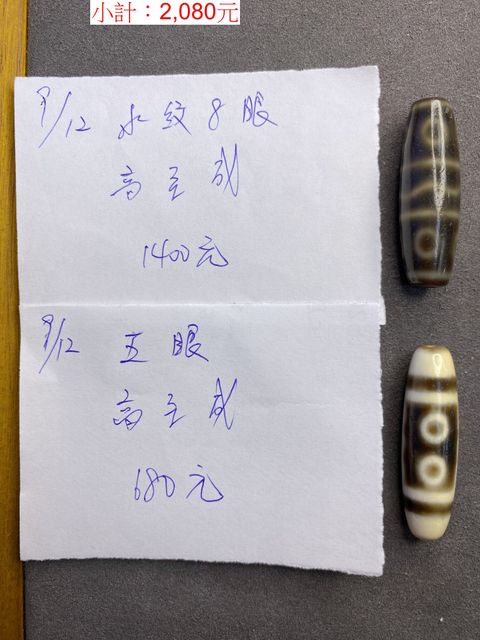 小計：2,080元
8/12 水紋8眼
高至成
1400元
8/12 五眼
高至成
680元